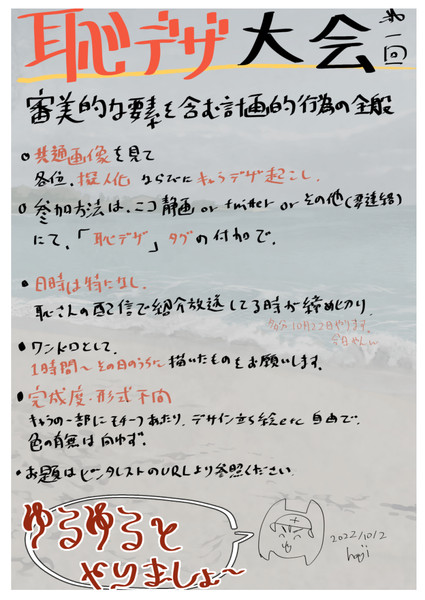 恥デザ大会 第一回
審美的な要素を含む計画的行為の全般
共通画像を見て
各位、擬人化 ならびに キャラデザ起こし.
参加方法は、ニコ静画 or twitter or その他(要連絡)
にて、「恥デザ」タグの付加で.
日時は特になし.
恥さんの配信で紹介放送してる時が締め切り.
多分10月22日やります。
今日やんw
ワンドロとして.
1時間〜その日のうちに描いたものをお願いします。
完成度・形式不問
キャラの一部にモチーフあたり、デザイン立ち絵etc 自由で.
色の有無は問わず.
お題はピンタレストのURLより参照ください.
ゆるゆると
やりましょ〜
2022/10/2